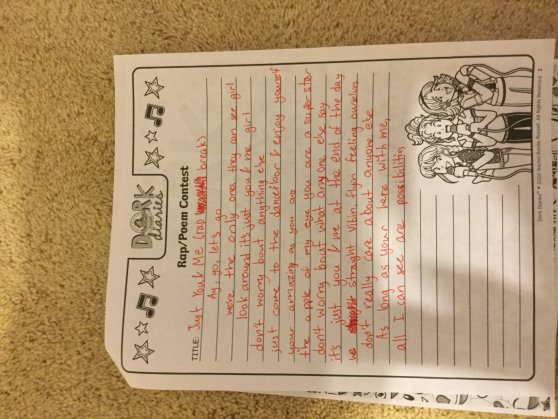 DORK
diaries
Rap/Poem Contest
TITLE: Just You & Me (rap break)
Ay, yo, let's go
we're the only ones they can see girl
look around it's just you & me girl
don't worry bout anything else
just come to the dancefloor & enjoy yourself
your amazing as you are
the apple of my eye you are a super star
don't worry bout what anyone else say
it's just you & me at the end of the day
we straight vibin flyin feeling ourselves
don't really care about anyone else
As long as your here with me,
all I can see are possibilities
Dork Diaries® © 2020 Rachel Renée Russell. All Rights Reserved.